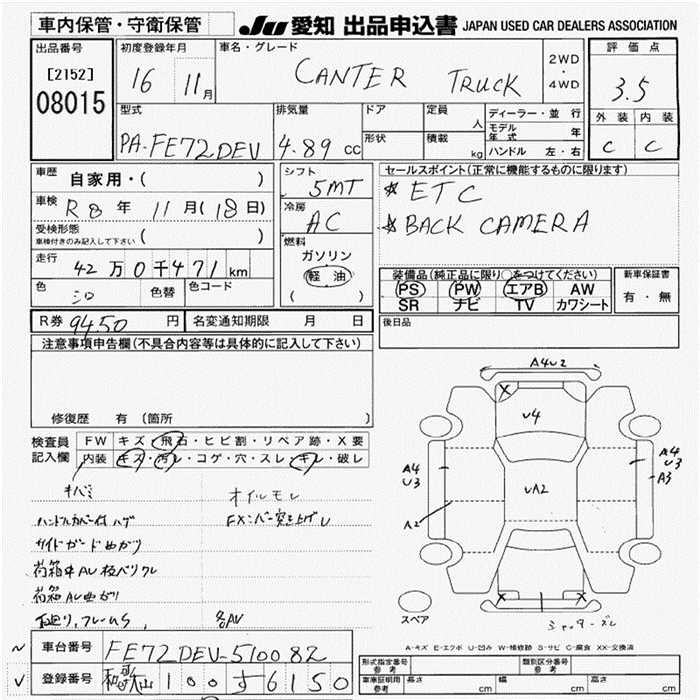 車内保管・守衛保管
JU 愛知 出品申込書 JAPAN USED CAR DEALERS ASSOCIATION
出品番号
[2152]
08015
初度登録年月
16 11月
車名・グレード
CANTER TRUCK
2WD
・
4WD
評価点
3.5
外装 内装
C C
型式
PA-FE72DEV
排気量
4.89 cc
ドア
形状
定員
人
積載
kg
ディーラー・並行
モデル年式 年
ハンドル 左・右
車歴 自家用・( )
車検 R8年 11月(18日)
受検形態
車検付きのみ記入して下さい ( )
走行 42万0千471km
色 シロ
色替
色コード
シフト
5MT
冷房
AC
燃料
ガソリン
軽油
( )
セールスポイント(正常に機能するものに限ります)
☆ ETC
☆ BACK CAMERA
装備品(純正品に限り○をつけてください)
PS PW エアB AW
SR ナビ TV カワシート
新車保証書
有・無
R券 9450 円
名変通知期限 月 日
後日品
注意事項申告欄(不具合内容等は具体的に記入して下さい)
修復歴 有(箇所
検査員
記入欄
FW キズ・飛石・ヒビ割・リペア跡・X要
内装 キズ・汚レ・コゲ・穴・スレ・キレ・破レ
キバミ
オイルモレ
ハンドルカバー付 ハゲ
FXバー突き上げU
サイドガード曲がり
荷箱中AU 板ベリワレ
荷箱AU曲がり
下廻り、フレームS、 各AU
A4U2
U4
UA2
A4
U3
A2
A4
U3
A3
X
X X
シャッターズレ
スペア
A-キズ E-エクボ U-凹み W-補修跡 S-サビ C-腐食 XX-交換済
車台番号 FE72DEV-510082
登録番号 和歌山 100 す 6150
形式指定番号
参考
類別区分番号
参考
車庫証明用
参考
長さ cm
幅 cm
高さ cm